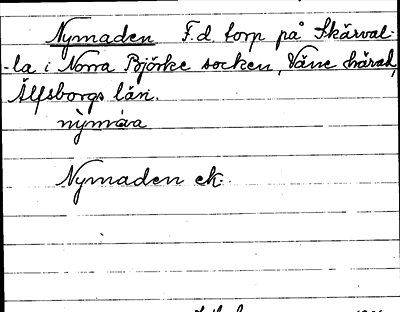 Nymaden F.d. torp på Skärval-
-la i Norra Björke socken, Väne härad,
Älfsborgs län.
nỳmáva
Nymaden ek.